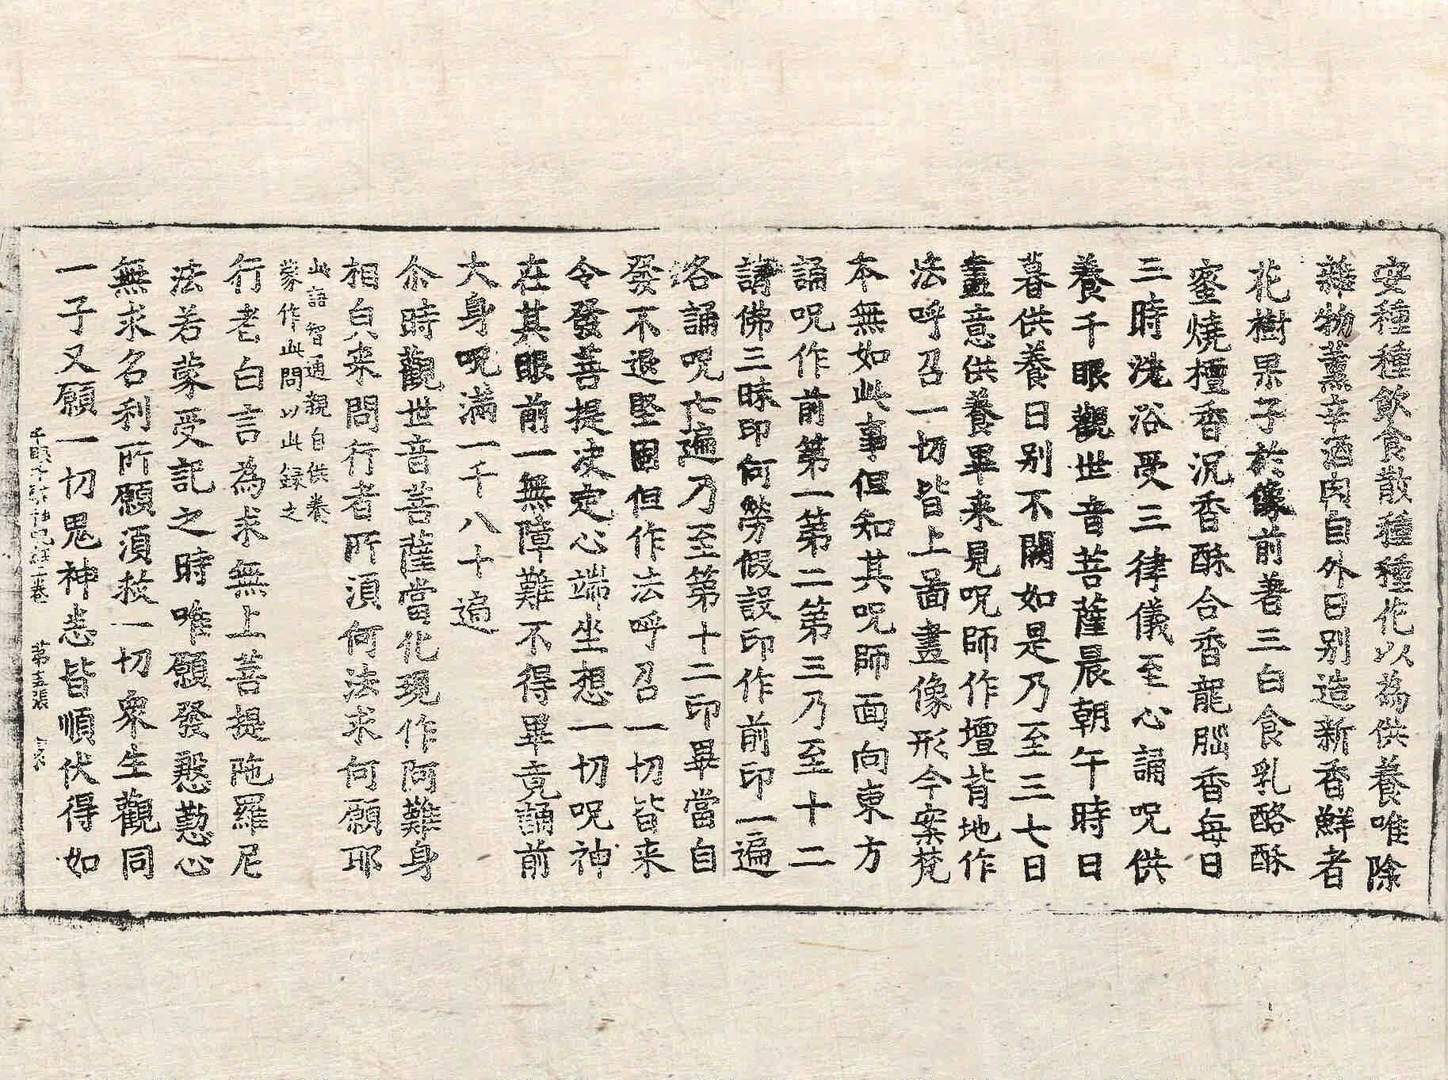 安種種飲食散種種花以為供養唯除
雜物薰辛酒肉自外日別造新香鮮者
花樹果子於像前著三白食乳酪酥
蜜燒檀香沉香酥合香龍腦香每日
三時洗浴受三律儀至心誦呪供
養千眼觀世音菩薩晨朝午時日
暮供養日別不闕如是乃至三七日
盡意供養畢来見呪師作壇背地作
法呼召一切皆上啚畫像形今案梵
本無如此事但知其呪師面向東方
誦呪作前第一第二第三乃至十二
請佛三昧印何勞假設印作前印一遍
各誦呪七遍乃至第十二印畢當自
發不退堅固但作法呼召一切皆来
令發菩提决定心端坐想一切呪神
在其眼前一無障難不得畢竟誦前
大身呪滿一千八十遍
尒時觀世音菩薩當化現作阿難身
相皃来問行者所須何法求何願耶
此語智通親自供養
蒙作此問以此録之
行者白言為求無上菩提陁羅尼
法若蒙受記之時唯願發慇懃心
無求名利所願須救一切衆生觀同
一子又願一切鬼神悉皆順伏得如
第五張